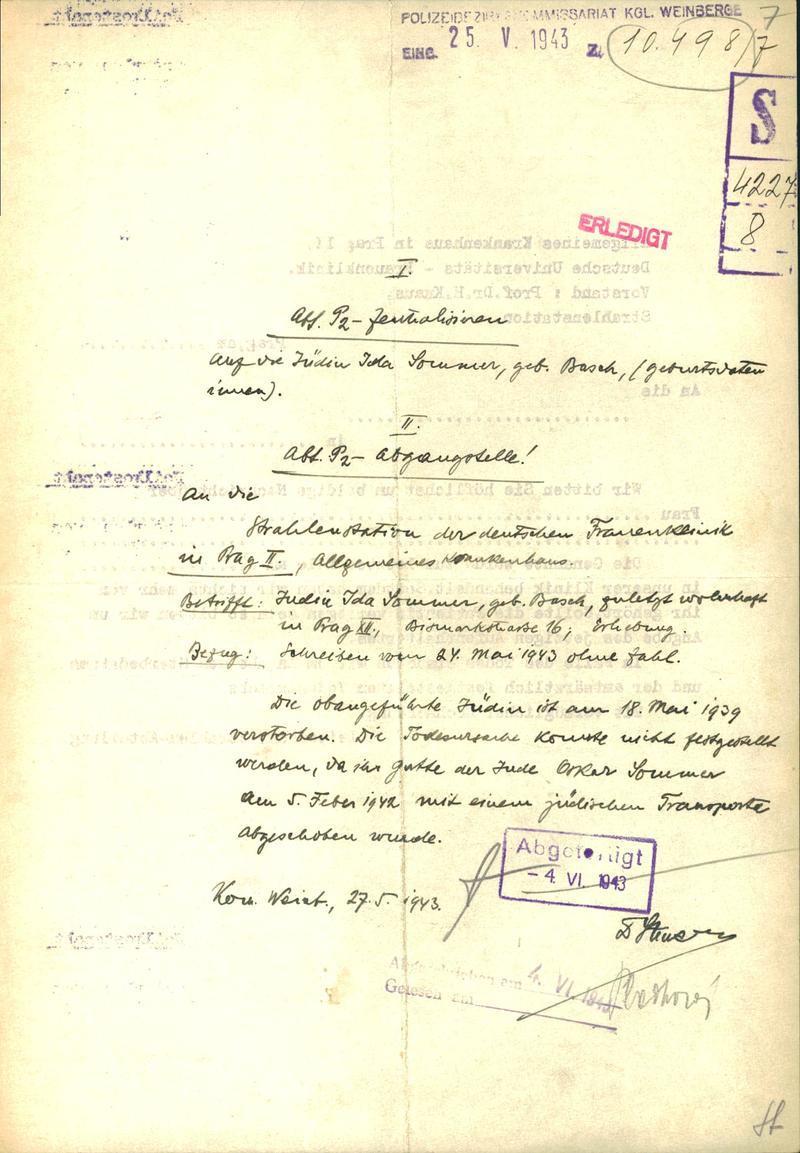 POLIZEIBEZIRKSKOMMISSARIAT KGL. WEINBERGE
7
EING. 25. V. 1943 Z. 10.498/7
S
4227
8
ERLEDIGT
I.
Abt. P2 – Zentralisieren
auf die Jüdin Ida Sommer, geb. Basch, (Geburtsdaten
innen).
II.
Abt. P2 – Abgangstelle!
An die
Strahlenstation der deutschen Frauenklinik
in Prag II., Allgemeines Krankenhaus.
Betrifft: Jüdin Ida Sommer, geb. Basch, zuletzt wohnhaft
in Prag XII., Bismarkstrasse 16; Erhebung.
Bezug: Schreiben vom 24. Mai 1943 ohne Zahl.
Die obangeführte Jüdin ist am 18. Mai 1939
verstorben. Die Todesursache konnte nicht festgestellt
werden, da ihr Gatte der Jude Oskar Sommer
am 5. Feber 1942 mit einem jüdischen Transporte
abgeschoben wurde.
Abgefertigt
– 4. VI. 1943
Kom. Weinb., 27.5. 1943.
Abgeschrieben am 4. VI. 1943
Gelesen am